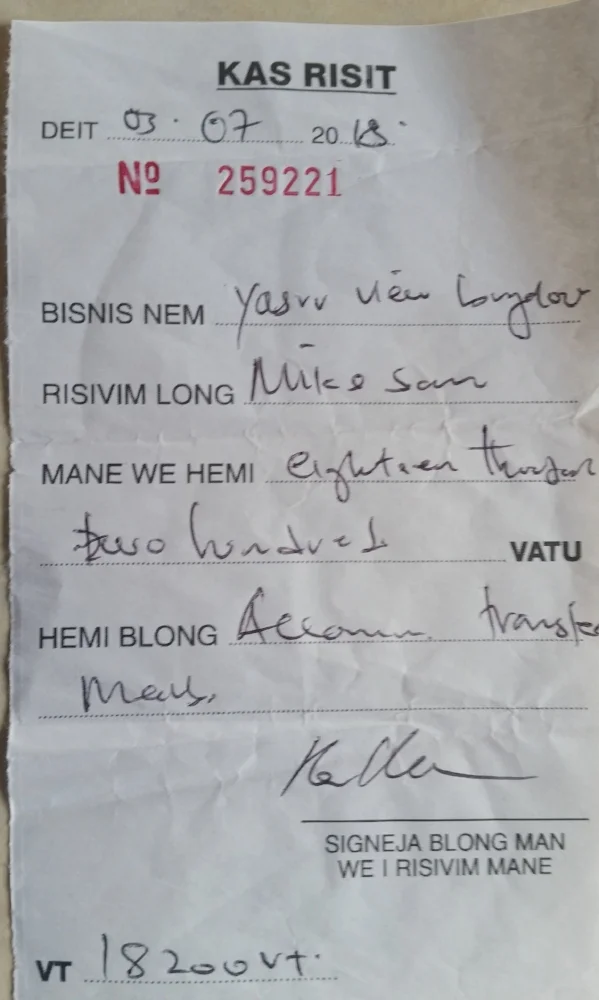 KAS RISIT
DEIT 03 . 07 2018.
No 259221
BISNIS NEM Yasuv View bungdow
RISIVIM LONG Mike Sam
MANE WE HEMI eighteen
two hundred VATU
HEMI BLONG Accomm. transfe
Meals,
SIGNEJA BLONG MAN
WE I RISIVIM MANE
VT 18200VT.